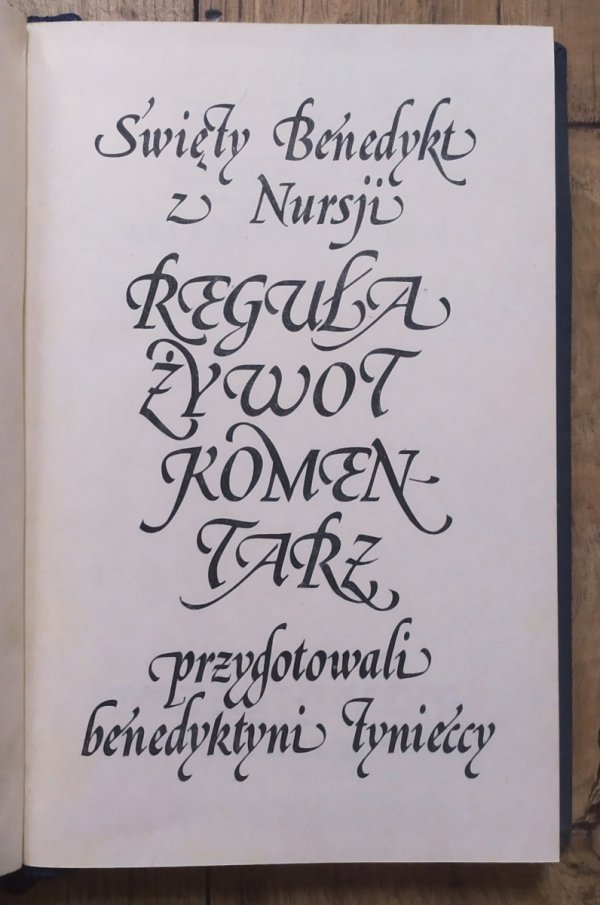 Święty Benedykt
z Nursji
REGUŁA
ŻYWOT
KOMEN-
TARZ
przygotowali
benedyktyni tynieccy